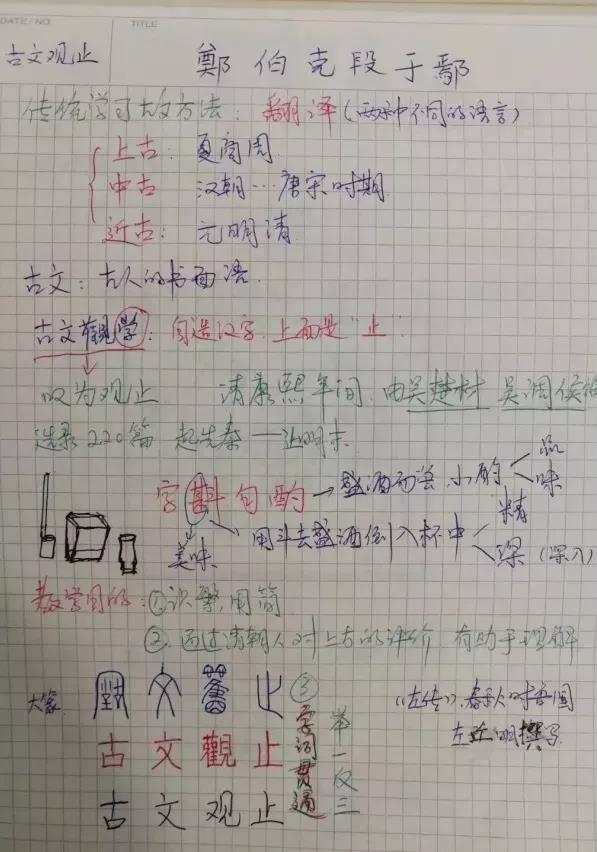 DATE/NO.
TITLE
古文观止
鄭伯克段于鄢
传统学习古文方法：翻译（两种不同的语言）
上古：夏商周
中古 汉朝…唐宋时期
近古：元明清
古文：古人的书面语.
古文觀：自造汉字，上面是“止”
叹为观止 清康熙年间，由吴楚材 吴调侯
选录220篇 起先秦—迄明末
字斟句酌→盛酒 小酌 品 味
美味 用斗去盛酒倒入杯中 精 深（深入）
教学目的：①识繁，用简
②通过清朝人对上古的评价 有助于理解
③字词贯通
举一反三
大篆
古文觀止
古文观止
《左传》，春秋时鲁国
左丘明撰写